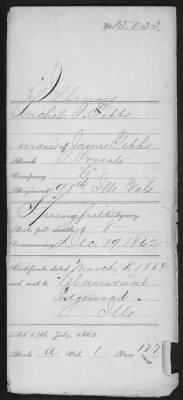 No. 15,022
Illinois
Rachel P. Tibbs
of James Tibbs
Rank Private
Company
Regiment 98th Ills Vols
Springfield Agency
Rate per month, $ 8
Commencing Dec 19 1862
Certificate dated March 1, 1864
and sent to
Edgewood
Ills
Act 14th July, 1862.
Book A Vol. 1 Page 177